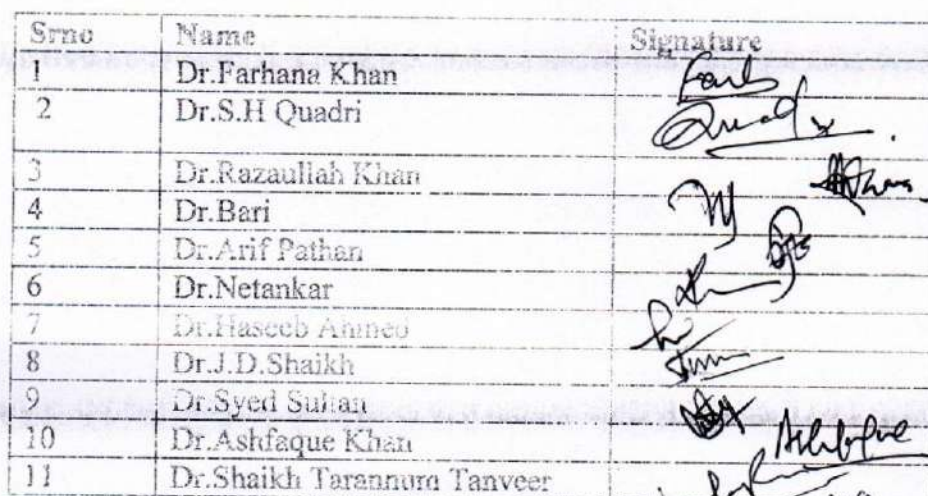 Srno Name Signature
1 Dr.Farhana Khan
2 Dr.S.H Quadri
3 Dr.Razaullah Khan
4 Dr.Bari
5 Dr.Arif Pathan
6 Dr.Netankar
7 Dr.Haseeb Ahmed
8 Dr.J.D.Shaikh
9 Dr.Syed Sultan
10 Dr.Ashfaque Khan Ashfaque
11 Dr.Shaikh Tarannum Tanveer